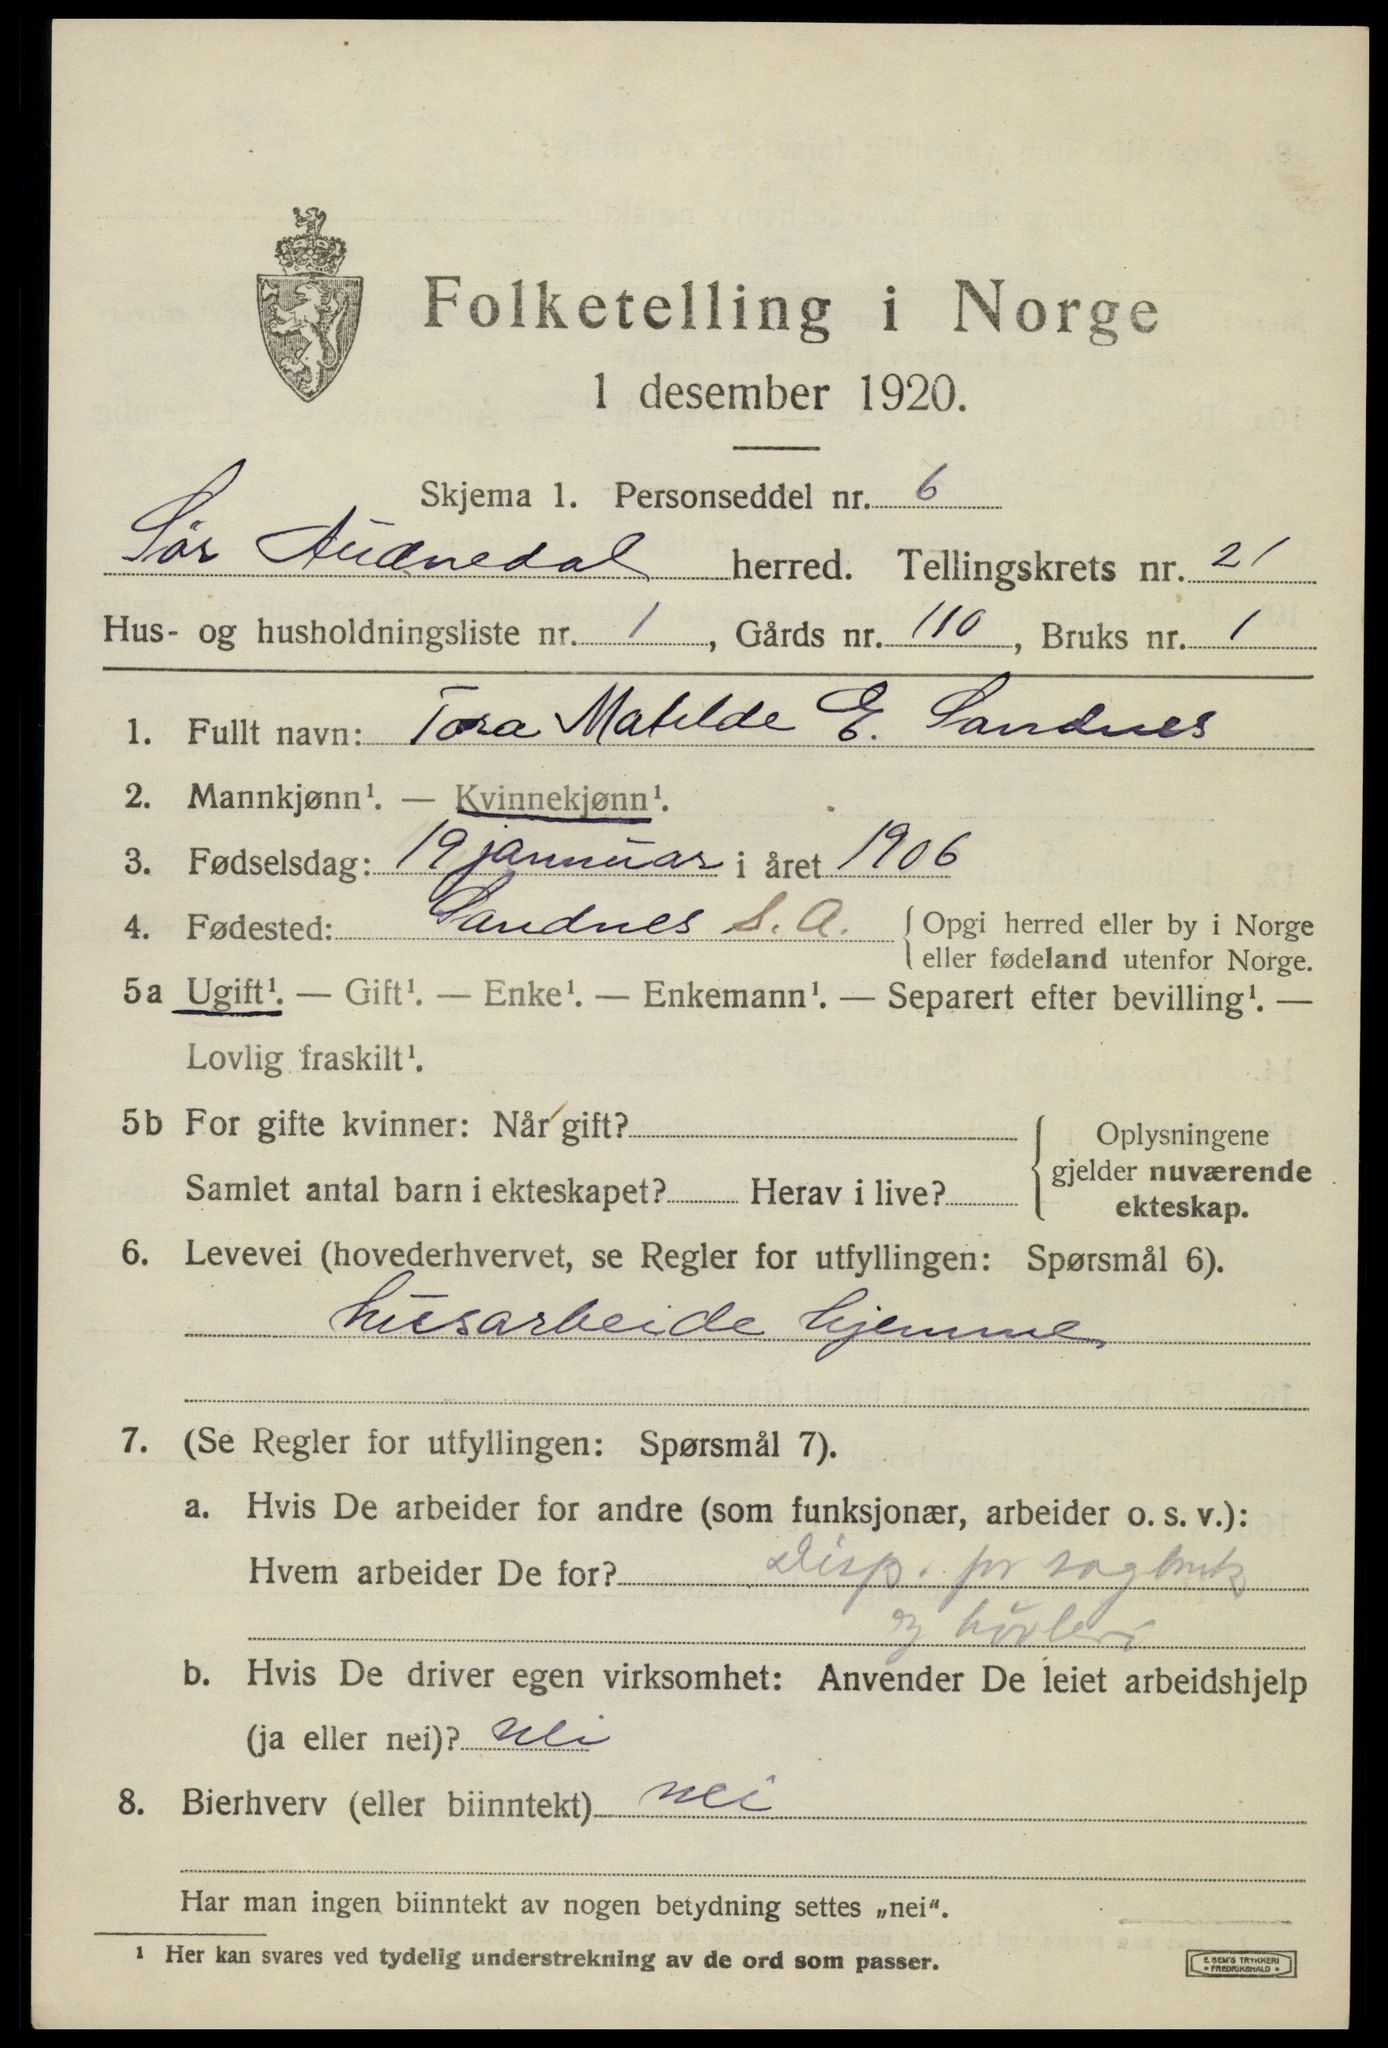 Folketelling i Norge
1 desember 1920.
Skjema 1. Personseddel nr. 6
Sør Audnedal herred. Tellingskrets nr. 21
Hus- og husholdningsliste nr. 1, Gårds nr. 110, Bruks nr. 1
1. Fullt navn: Tora Matilde E. Sandnes
2. Mannkjønn¹. — Kvinnekjønn¹.
3. Fødselsdag: 19 januar i året 1906
4. Fødested: Sandnes S. A. Opgi herred eller by i Norge
eller fødeland utenfor Norge.
5a Ugift¹. — Gift¹. — Enke¹. — Enkemann¹. — Separert efter bevilling¹. —
Lovlig fraskilt¹.
5b For gifte kvinner: Når gift?
Samlet antal barn i ekteskapet? Herav i live?
Oplysningene
gjelder nuværende
ekteskap.
6. Levevei (hovederhvervet, se Regler for utfyllingen: Spørsmål 6).
husarbeide hjemme
7. (Se Regler for utfyllingen: Spørsmål 7).
a. Hvis De arbeider for andre (som funksjonær, arbeider o. s. v.):
Hvem arbeider De for? Disp. for sagbruk
og høvleri
b. Hvis De driver egen virksomhet: Anvender De leiet arbeidshjelp
(ja eller nei)? nei
8. Bierhverv (eller biinntekt) nei
Har man ingen biinntekt av nogen betydning settes „nei“.
¹ Her kan svares ved tydelig understrekning av de ord som passer.
E SEM'S TRYKKERI
• FREDRIKSHALD •